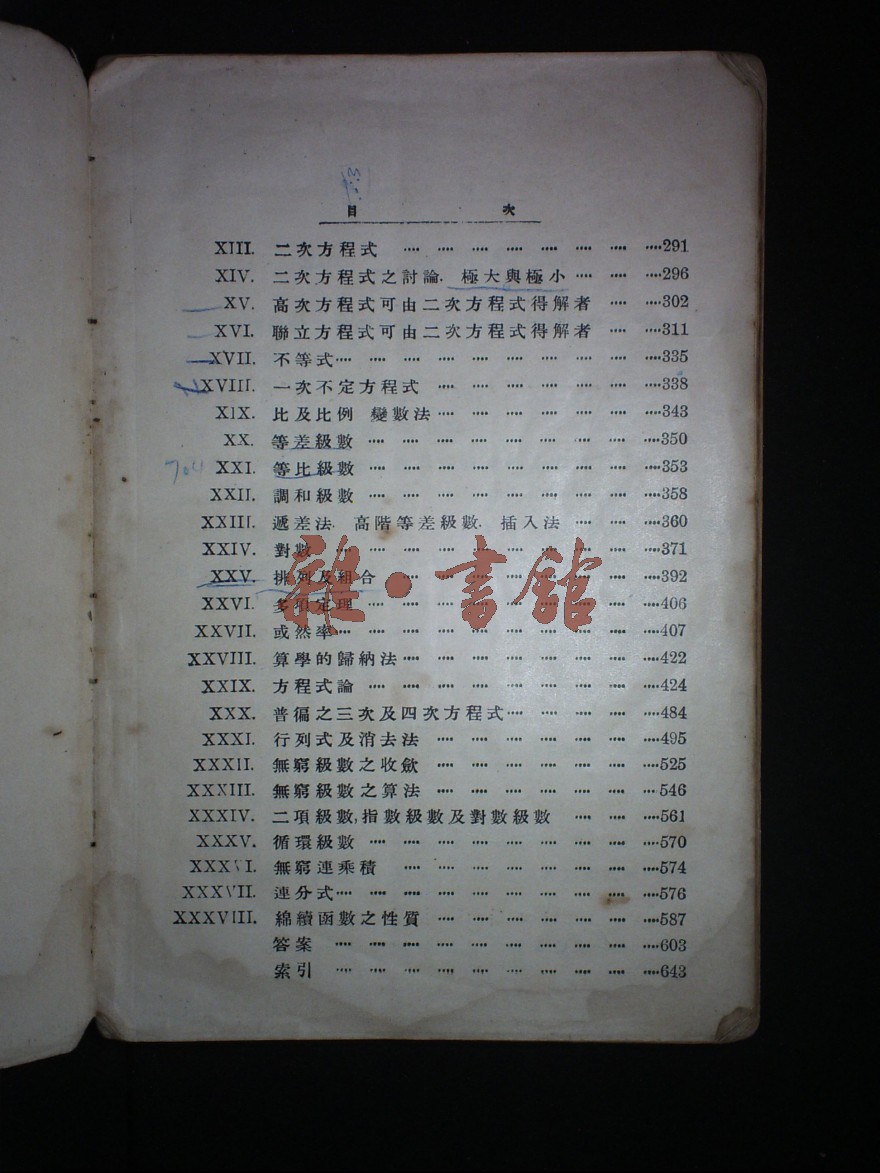 目 次
XIII. 二次方程式 291
XIV. 二次方程式之討論. 極大與極小 296
XV. 高次方程式可由二次方程式得解者 302
XVI. 聯立方程式可由二次方程式得解者 311
XVII. 不等式 335
XVIII. 一次不定方程式 338
XIX. 比及比例 變數法 343
XX. 等差級數 350
XXI. 等比級數 353
XXII. 調和級數 358
XXIII. 遞差法. 高階等差級數. 插入法 360
XXIV. 對數 371
XXV. 排列及組合 392
XXVI. 多項定理 406
XXVII. 或然率 407
XXVIII. 算學的歸納法 422
XXIX. 方程式論 424
XXX. 普徧之三次及四次方程式 484
XXXI. 行列式及消去法 495
XXXII. 無窮級數之收斂 525
XXXIII. 無窮級數之算法 546
XXXIV. 二項級數,指數級數及對數級數 561
XXXV. 循環級數 570
XXXVI. 無窮連乘積 574
XXXVII. 連分式 576
XXXVIII. 綿續函數之性質 587
答案 603
索引 643